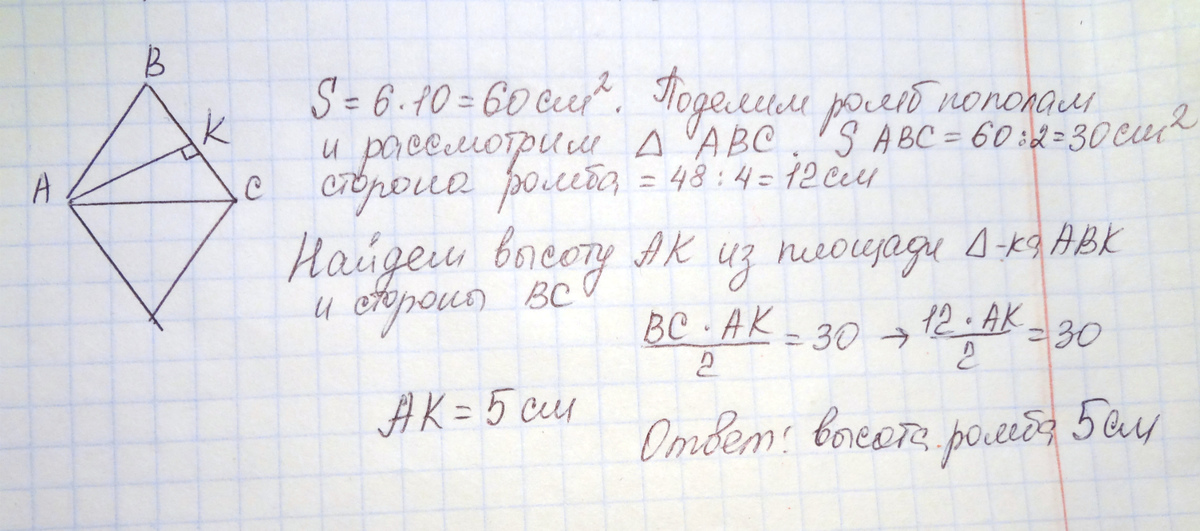 B
K
A
C
S = 6 · 10 = 60 см². Поделим ромб пополам
и рассмотрим Δ ABC. S ABC = 60 : 2 = 30 см²
сторона ромба = 48 : 4 = 12 см
Найдем высоту AK из площади Δ-ка ABK
и стороны BC
BC · AK / 2 = 30 → 12 · AK / 2 = 30
AK = 5 см
Ответ: высота ромба 5 см